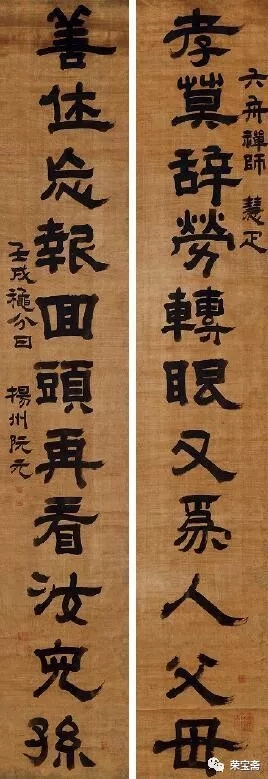 六舟禪師 慧疋
孝莫辭勞轉眼又爲人父母
善休忘報回頭再看汝兒孫
壬戌穐分日 揚州阮元
荣宝斋